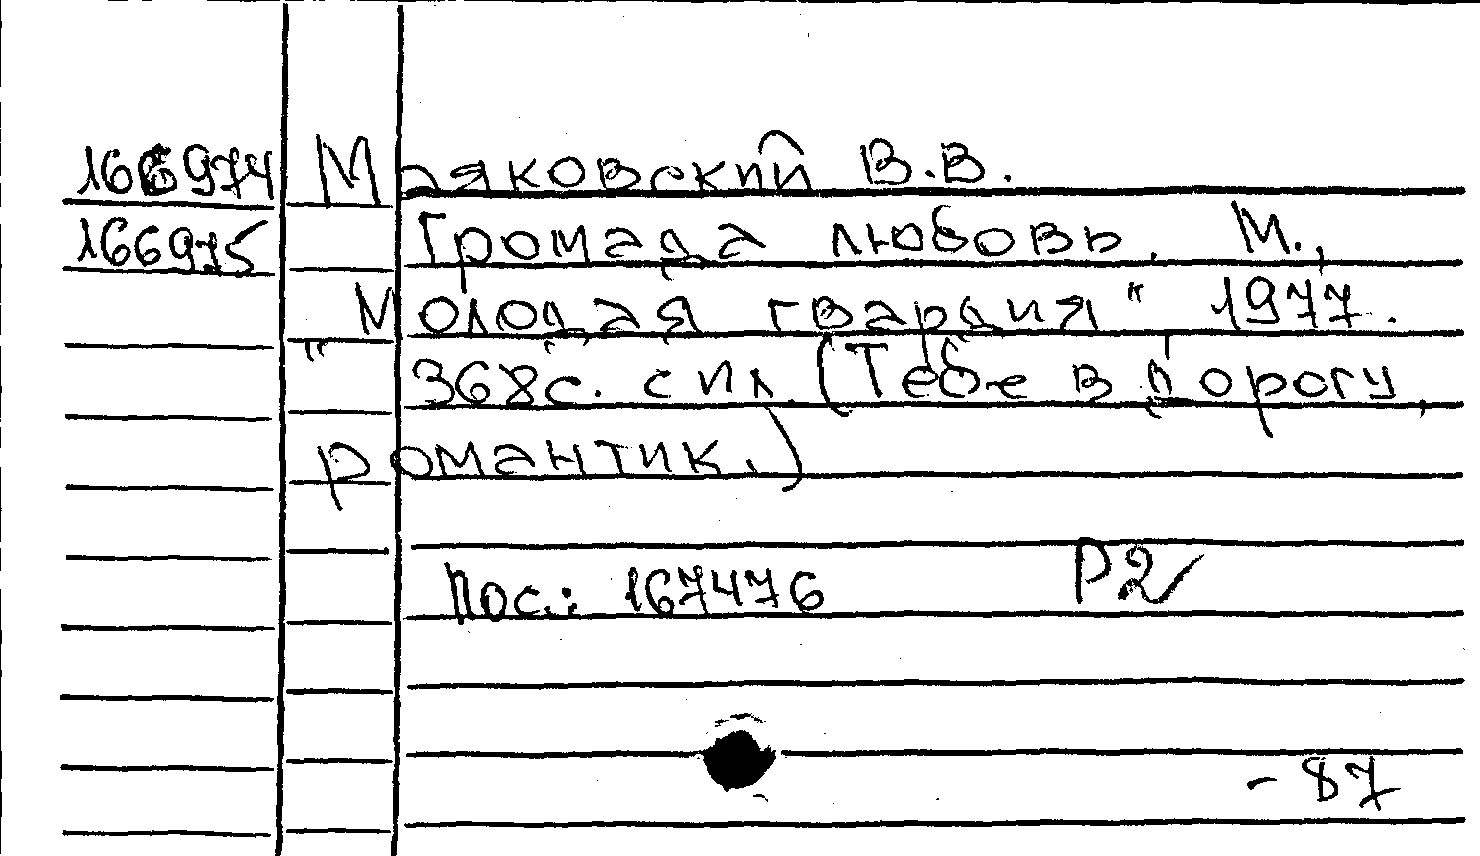 166974 Маяковский В.В.
166975 Громада любовь. М.,
"Молодая гвардия" 1977.
368с. с ил. (Тебе в дорогу,
романтик.)
Пос.: 167476 Р2
-87